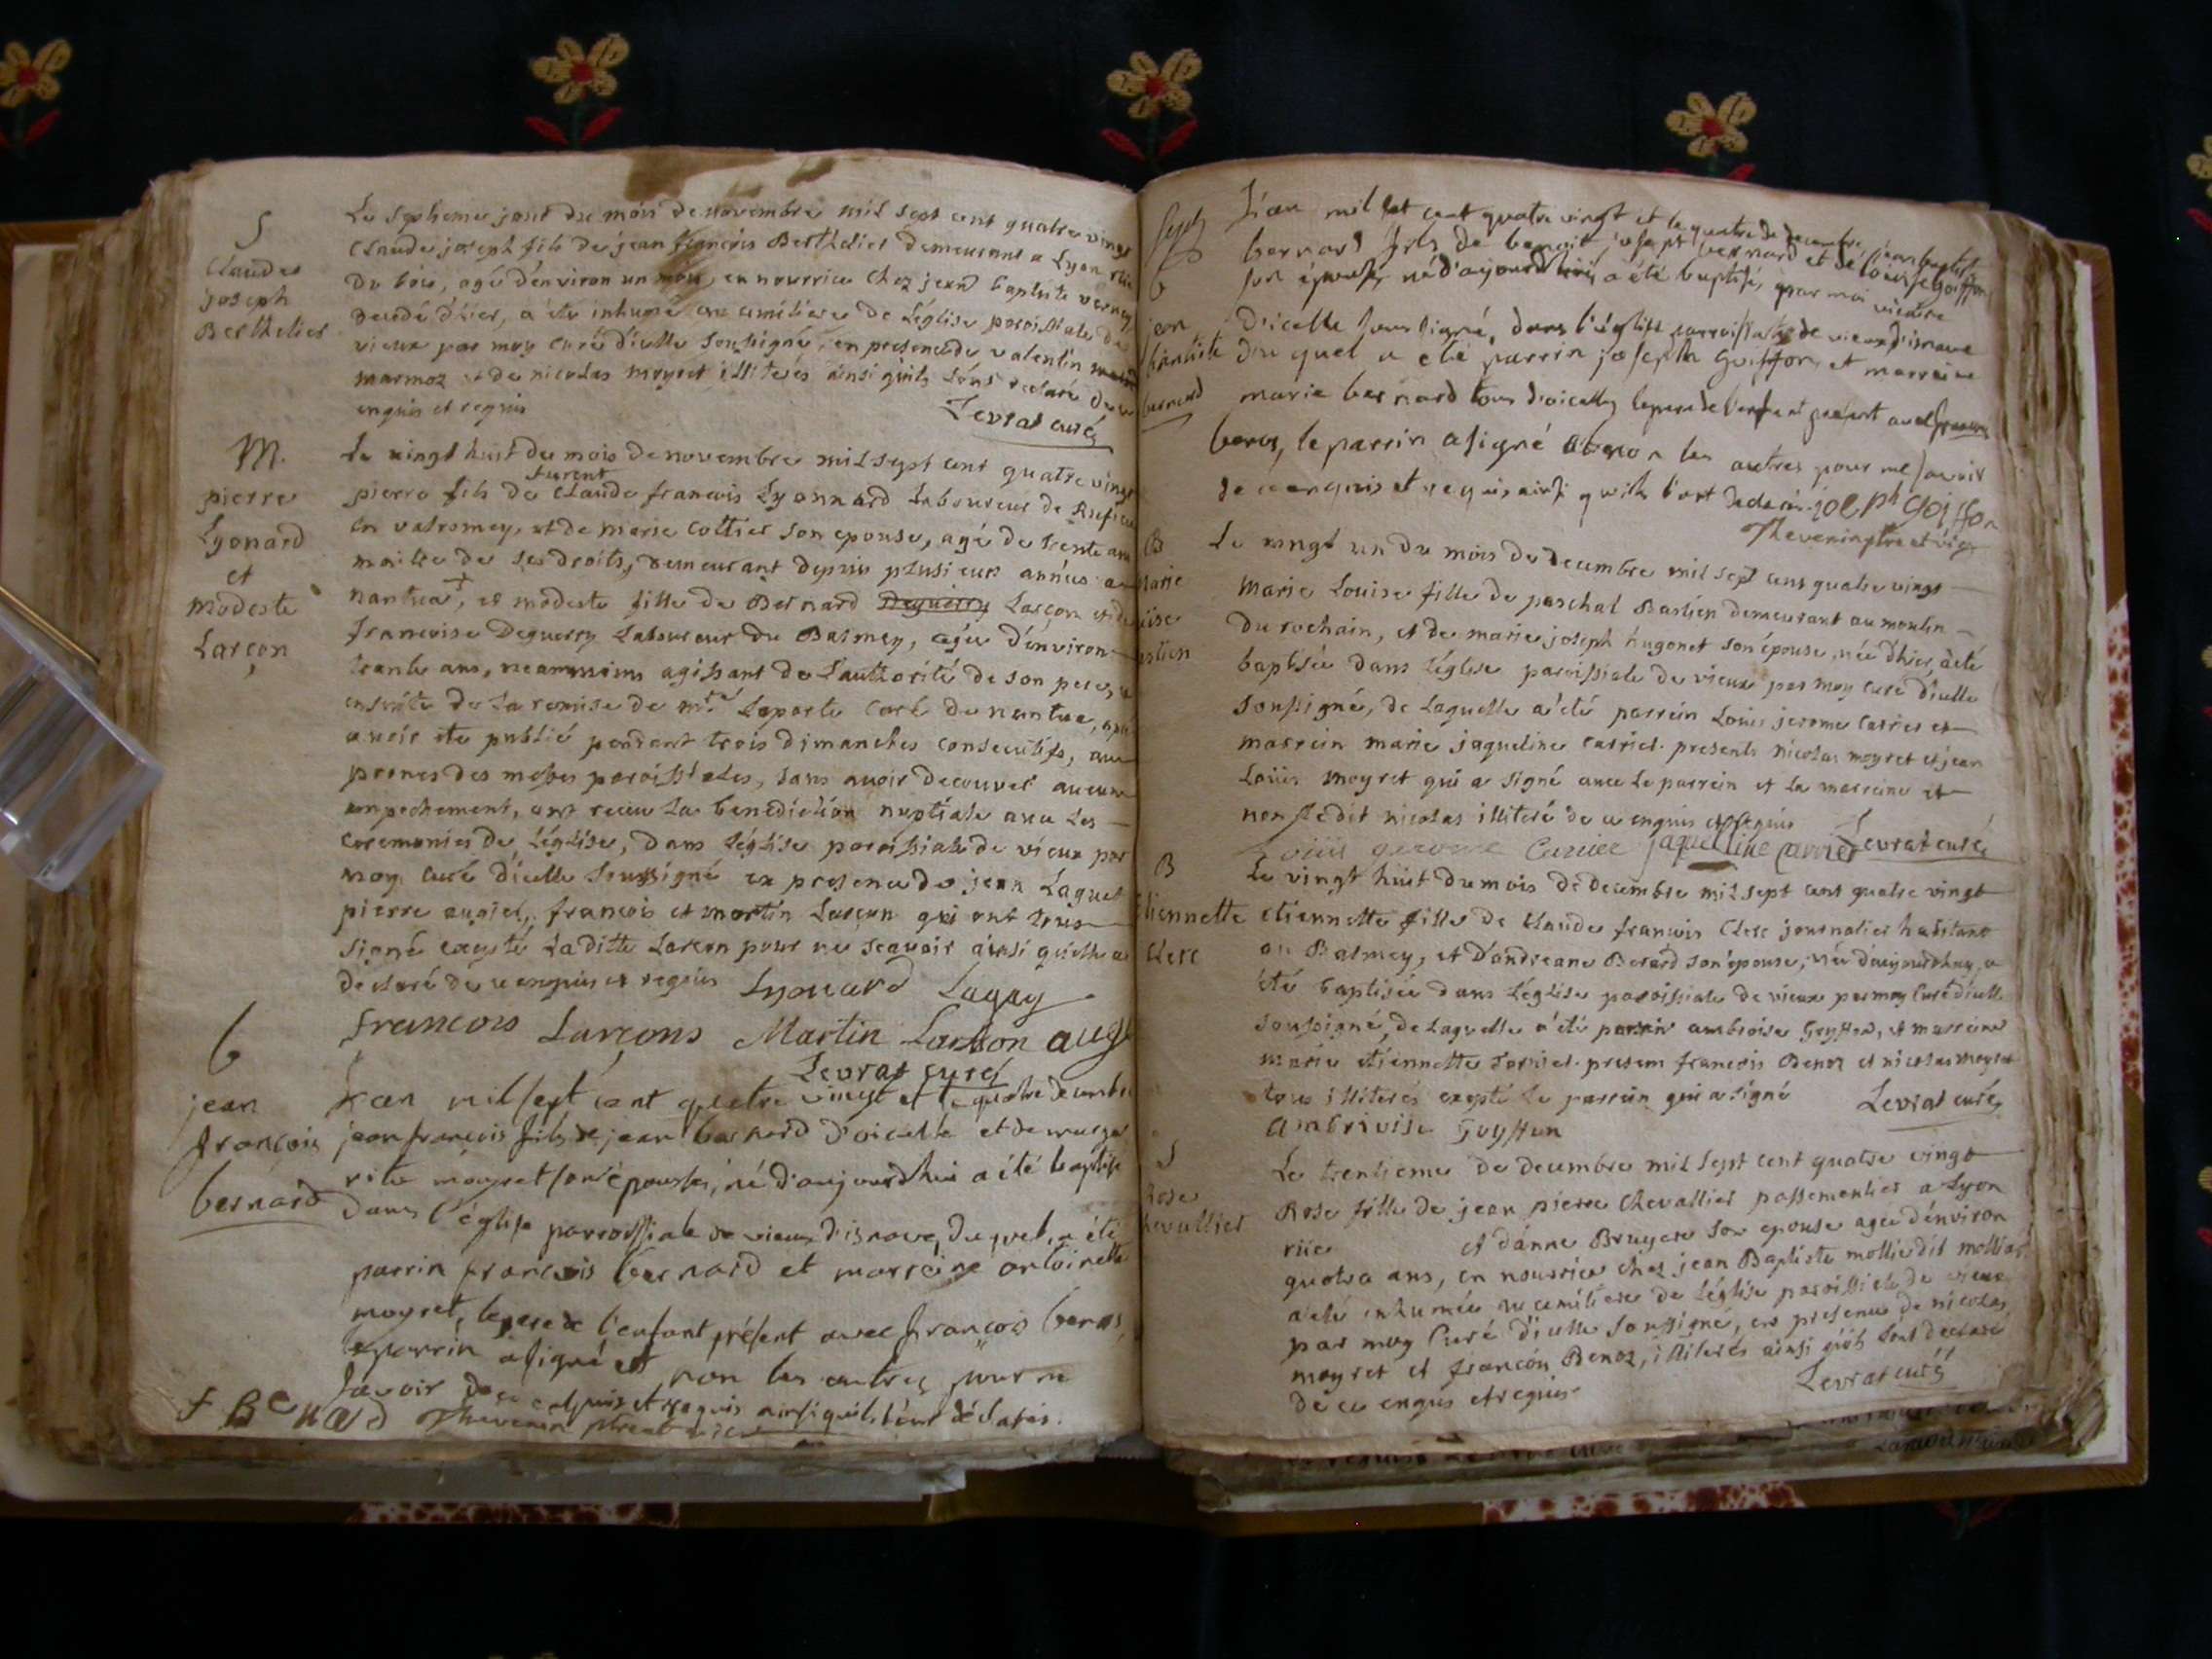 S
Claude
joseph
Berthelier
Le septieme jour du mois de novembre mil sept cent quatre vingt
Claude joseph fils de jean francois Berthelier demeurant a Lyon rüe
du bois, agé d'environ un mois, en nourrice chez jean baptiste
decedé d'hier, a été inhumé au cimétiere de L'église paroissiale de
vieux par moy curé d'icelle soussigné, en presence de valentin
marmoz et de nicolas moyret illiterés ainsi quils L'ont declaré de ce
enquis et requis
Levrat curé
M.
pierre
Lyonard
et
modeste
Larçon
Le vingt huit du mois de novembre mil sept cent quatre vingt
pierre fils de furent Claude francois Lyonnard Laboureur de
en valromey, et de marie Cottier son epouse, agé de trente ans
maitre de ses droits, demeurant depuis plusieurs années a
nantua, et modeste fille de Bernard Deguerry Larçon et de
francoise Deguerry Laboureur du Balmey, agée d'environ
trente ans, neammoins agissant de L'authorité de son pere,
ensuite de La remise de mre Laporte Curé de nantua, apres
avoir été publié pendant trois dimanches consecutifs, aux
prones des messes paroissiales, sans avoir decouvert aucun
empechement, ont receu La benediction nuptiale avec Les
ceremonies de L'église, dans L'église paroissiale de vieux par
moy curé d'icelle soussigné en presence de jean Laguet
pierre augier, francois et martin Larçon qui ont tous
signé excepté Laditte Larçon pour ne scavoir ainsi quelle a
déclaré de ce enquis et requis Lyonard Laguy
francois Larçons Martin Larson
Levrat curé
b
jean
françois
bernard
L'an mil sept cent quatre vingt et le quatre decembre
jean françois fils de jean bernard d'oicelle et de margue
rite moyret son épouse, né d'aujourdhui a été baptisé
dans l'église parroissiale de vieux d'isnave, duquel a été
parrin françois bernard et marreine antoinette
moyret, le pere de l'enfant présent avec françois benos,
le parrin a signé et non les autres pour ne
savoir de ce enquis et requis ainsi quils l'ont déclaré.
f Benard Thevenin ptre et vic
b
jean
baptiste
bernard
L'an mil set cent quatre vingt et le quatre de decembre jean baptiste
bernard fils de benoit joseph bernard et de louise goiffon
son épouse, né d'aujourdhui, a été baptisé, par moi vicaire
d'icelle soussigné, dans l'église parroissiale de vieux d'isnave
du quel a été parrin joseph Goiffon, et marreine
marie bernard tous d'oicelle, le pere de l'enfant présent avec francois
benos, le parrin a signé et non les autres pour ne savoir
de ce enquis et requis ainsi quils l'ont déclaré. joseph Goiffon
Thevenin ptre et vic
B
marie
Louise
Bastien
Le vingt un du mois de decembre mil sept cent quatre vingt
marie Louise fille de paschal Bastien demeurant au moulin
du rochain, et de marie joseph hugonet son épouse, née d'hier, a été
baptisée dans L'église paroissiale de vieux par moy curé d'icelle
soussigné, de Laquelle a été parrein Louis jerome Carrier et
marrein marie jaqueline Carrier. presents nicolas moyret et jean
Louis moyret qui a signé avec Le parrein et La marreine et
non Ledit nicolas illiteré de ce enquis et requis
Loüis gerome Carrier jaquelline Carrier Levrat curé
B
Etiennette
Clerc
Le vingt huit du mois de decembre mil sept cent quatre vingt
etiennette fille de Claude francois Clerc journalier habitant
au Balmey, et d'andreane Berard son épouse, née d'aujourdhuy, a
été baptisée dans L'église paroissiale de vieux par moy Curé d'icelle
soussigné, de Laquelle a été parrein ambroise Goyffon, et marreine
marie etiennette Cornier. presens francois Benoz et nicolas moyret
tous illiterés excepté Le parrein qui a signé Levrat curé
ambrivise Goyffon
S
Rose
Chevallier
Le trentieme de decembre mil sept cent quatre vingt
Rose fille de jean pierre Chevallier passementier a Lyon
rüe et d'anne Bruyere son epouse agée d'environ
quatre ans, en nourrice chez jean Baptiste mollie dit molliard
a été inhumée au cimétiere de L'église paroissiale de vieux
par moy Curé d'icelle soussigné, en presence de nicolas
moyret et francois Benoz, illiterés ainsi quils L'ont declaré
de ce enquis et requis
Levrat curé